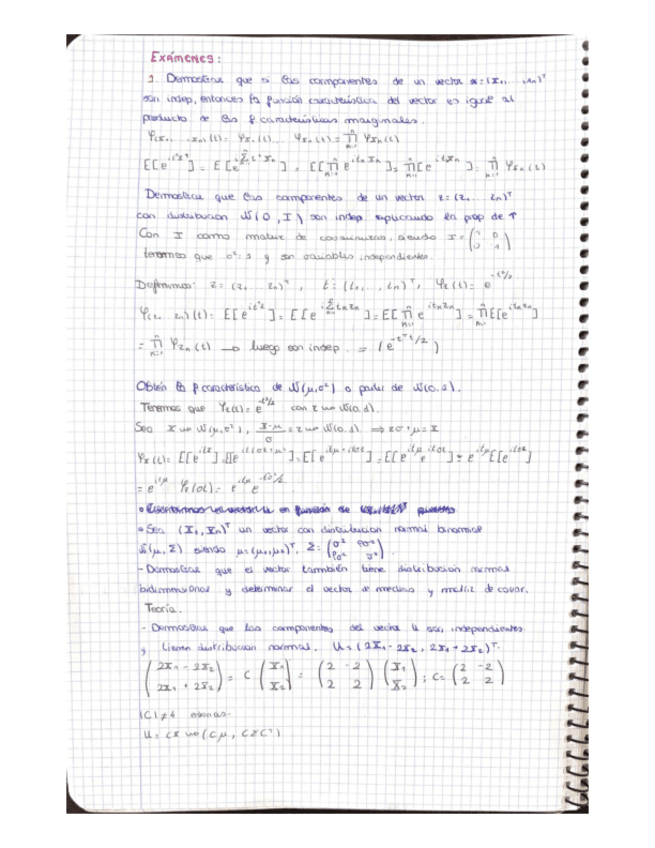 EXÁMENES:
1. Demostrar que si las componentes de un vector x=(x₁, ... xₙ)ᵀ
son indep, entonces la función característica del vector es igual al
producto de las f características marginales.
φ(x₁, ... xₙ)(t) = φx₁(t) ... φxₙ(t) = ∏ φxₙ(t)
Demostrar que las componentes de un vector z=(z₁ ... zₙ)ᵀ
con distribución N(0, I) son indep. aplicando la prop de ↑
Con I como matriz de covarianzas, siendo I = (1 0 / 0 1)
tenemos que σ²=1 y son variables independientes.
Definimos: z = (z₁ ... zₙ)ᵀ, t = (t₁, ..., tₙ)ᵀ, φz(t) = e^(-t²/2)
= ∏ φzₙ(t) → luego son indep. = (e^(-tᵀt/2))
Obtén la f característica de N(μ,σ²) a partir de N(0,1).
Tenemos que φz(t) = e^(-t²/2) con z ~ N(0,1).
Sea X ~ N(μ,σ²), (X-μ)/σ = z ~ N(0,1) ⇒ zσ+μ = X
= e^(itμ) φz(σt) = e^(itμ) e
• Sea (X₁, X₂)ᵀ un vector con distribución normal
N(μ, Σ) siendo μ=(μ₁,μ₂)ᵀ, Σ = (σ² ρσ² / ρσ² σ²).
- Demostrar que el vector también tiene distribución normal
bidimensional y determinar el vector de medias y matriz de covar.
Teoría.
- Demostrar que las componentes del vector U son independientes
y tienen distribución normal. U = (2X₁ - 2X₂, 2X₁ + 2X₂)ᵀ.
(2X₁ - 2X₂ / 2X₁ + 2X₂) = C (X₁ / X₂) = (2 -2 / 2 2) (X₁ / X₂); C = (2 -2 / 2 2)
|C| ≠ 4 entonces
U = CX ~ (Cμ, CΣCᵀ)